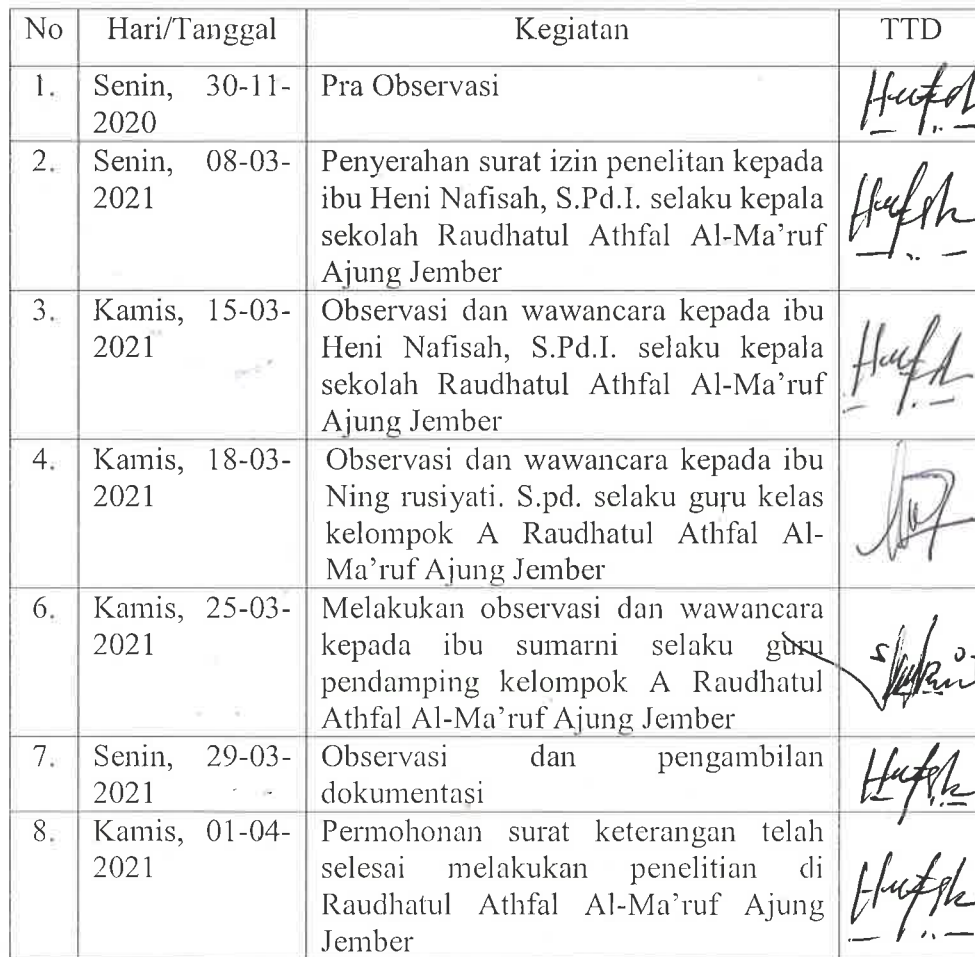 No Hari/Tanggal Kegiatan TTD
1. Senin, 30-11- Pra Observasi
2020
2. Senin, 08-03- Penyerahan surat izin penelitan kepada
2021 ibu Heni Nafisah, S.Pd.I. selaku kepala
sekolah Raudhatul Athfal Al-Ma'ruf
Ajung Jember
3. Kamis, 15-03- Observasi dan wawancara kepada ibu
2021 Heni Nafisah, S.Pd.I. selaku kepala
sekolah Raudhatul Athfal Al-Ma'ruf
Ajung Jember
4. Kamis, 18-03- Observasi dan wawancara kepada ibu
2021 Ning rusiyati. S.pd. selaku guru kelas
kelompok A Raudhatul Athfal Al-
Ma'ruf Ajung Jember
6. Kamis, 25-03- Melakukan observasi dan wawancara
2021 kepada ibu sumarni selaku guru
pendamping kelompok A Raudhatul
Athfal Al-Ma'ruf Ajung Jember
7. Senin, 29-03- Observasi dan pengambilan
2021 dokumentasi
8. Kamis, 01-04- Permohonan surat keterangan telah
2021 selesai melakukan penelitian di
Raudhatul Athfal Al-Ma'ruf Ajung
Jember